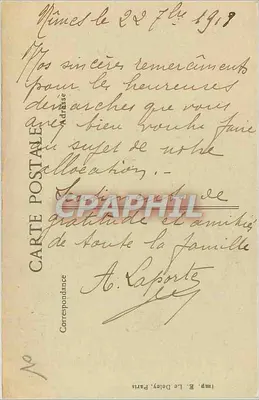 Nîmes le 22 7bre 1919
Nos sincères remerciments
pour les heureuses
démarches que vous
avez bien voulu faire
au sujet de notre
allocation. —
Sentiments de
gratitude et amitiés
de toute la famille
A. Laporte
CARTE POSTALE
Adresse
Correspondance
CPAPHIL.COM
Imp. E. Le Deley, Paris